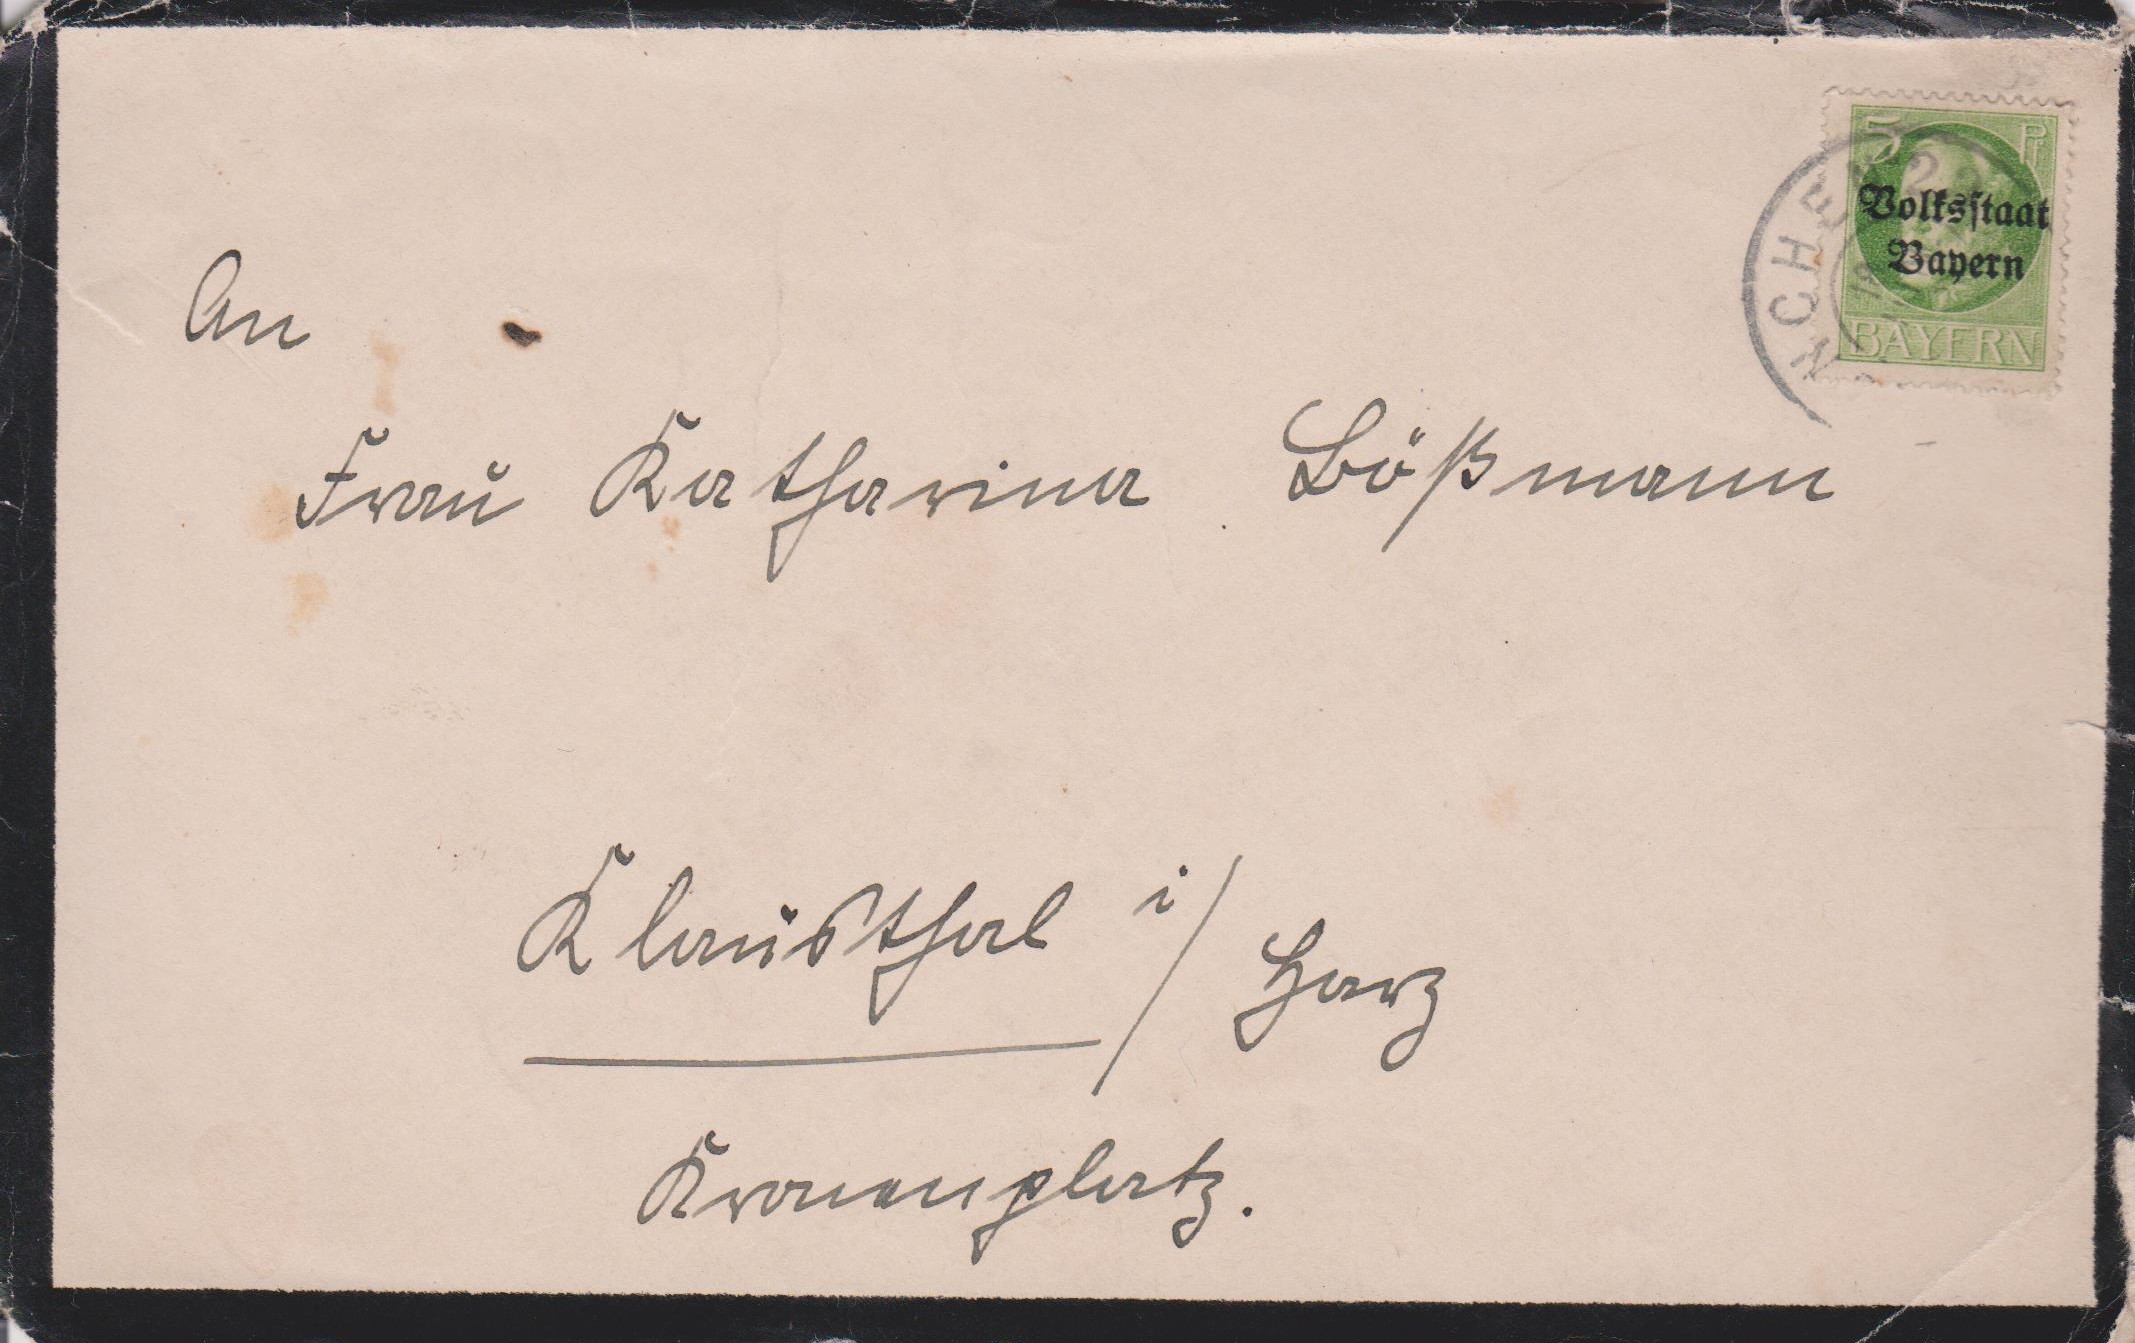 5 Pf
Volksstaat
Bayern
BAYERN
An
Frau Katharina Bößmann
Klausthal i/Harz
Kronenplatz.